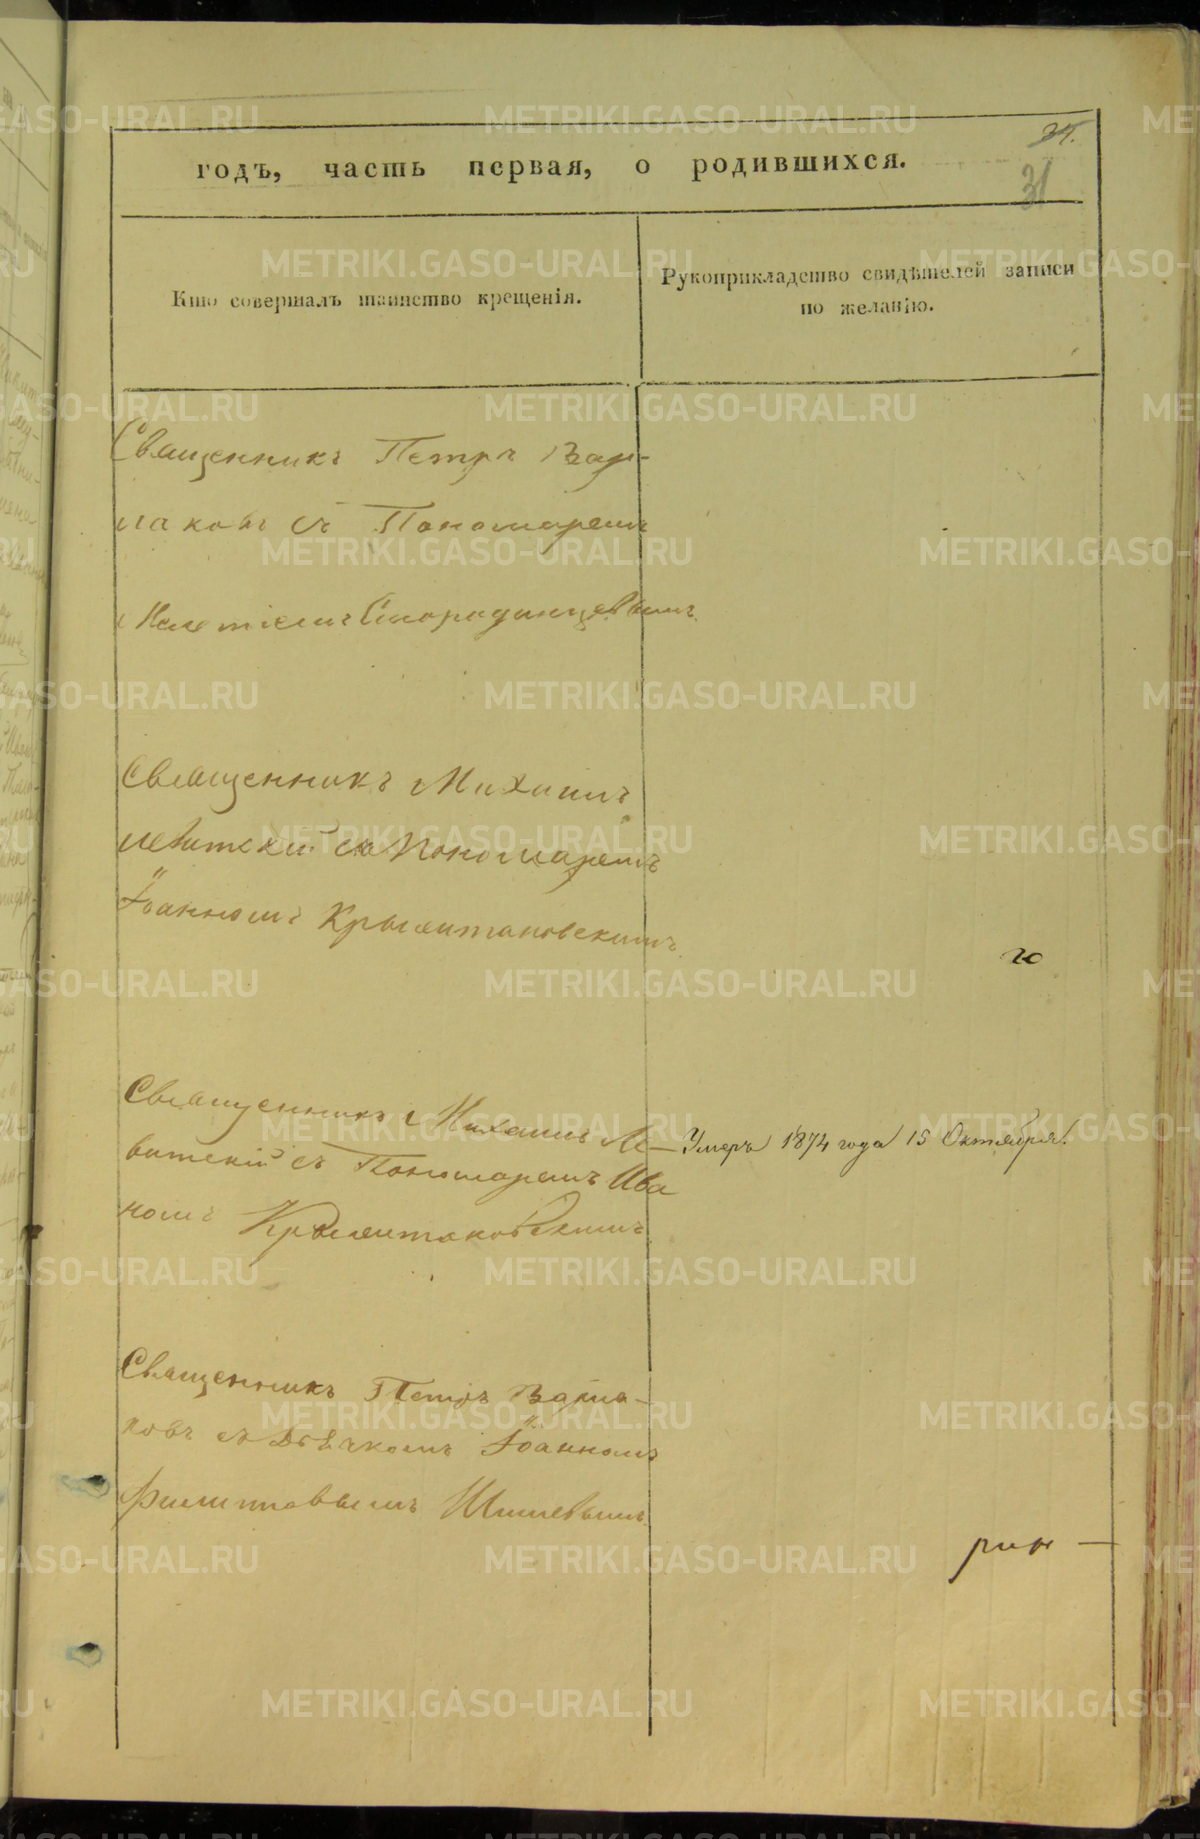 34.
31
годъ, часть первая, о родившихся.
Кто совершалъ таинство крещенія.
Рукоприкладство свидѣтелей записи
по желанію.
Священникъ Петръ Вар-
лаковъ съ Пономаремъ
Священникъ Михаилъ
Левитскій съ Пономаремъ
Іоанномъ
Священникъ Михаилъ Ле-
витскій съ Пономаремъ Ива
номъ
Умеръ 1874 года 15 Октября.
Священникъ Петръ Варла-
ковъ съ Дьячкомъ Іоанномъ
Филипповымъ Шишевымъ
METRIKI.GASO-URAL.RU